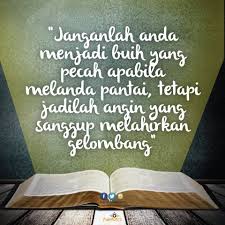 "Janganlah anda
menjadi buih yang
pecah apabila
melanda pantai, tetapi
jadilah angin yang
sanggup melahirkan
gelombang"